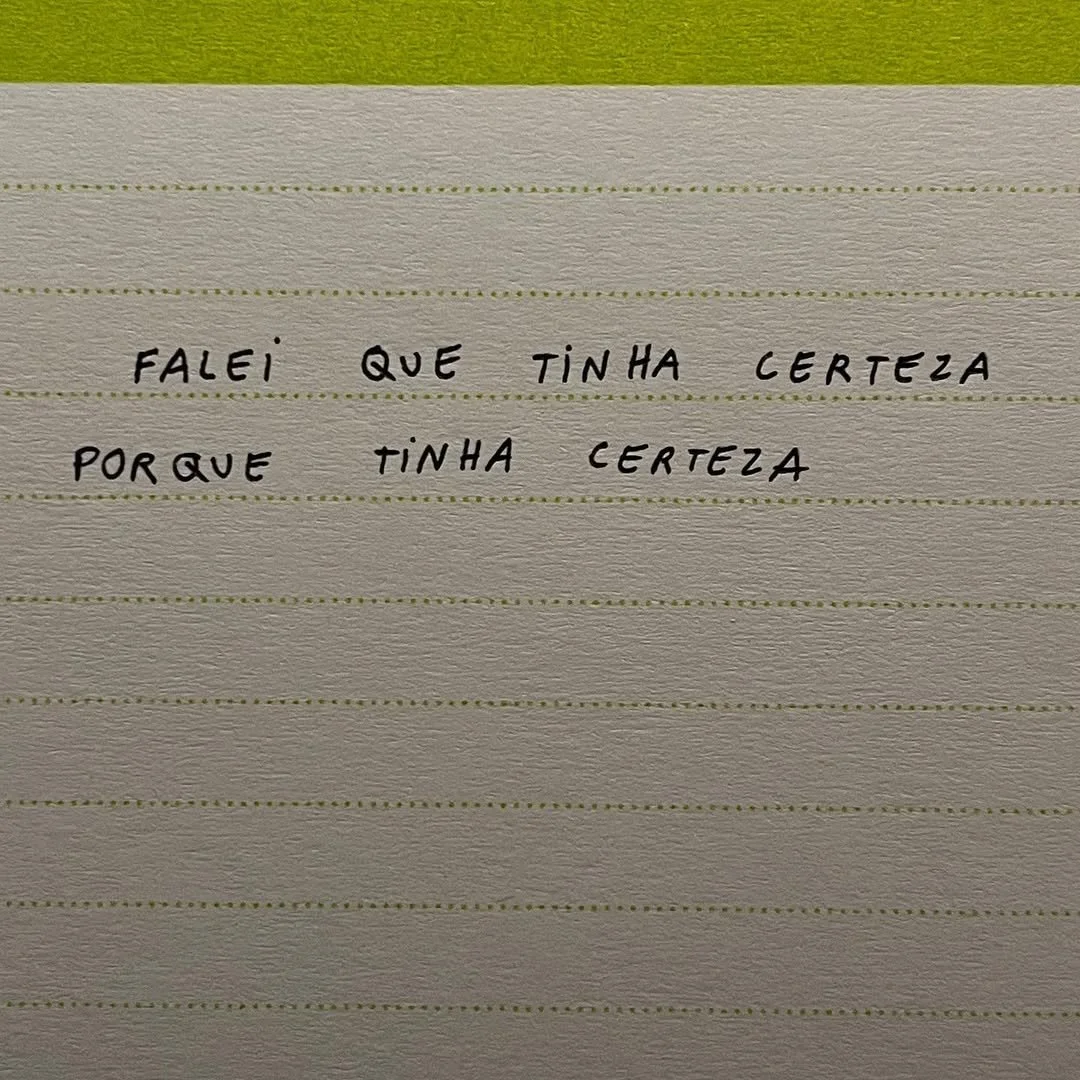 FALEi QUE TiNHA CERTEZA
PORQUE TiNHA CERTEZA